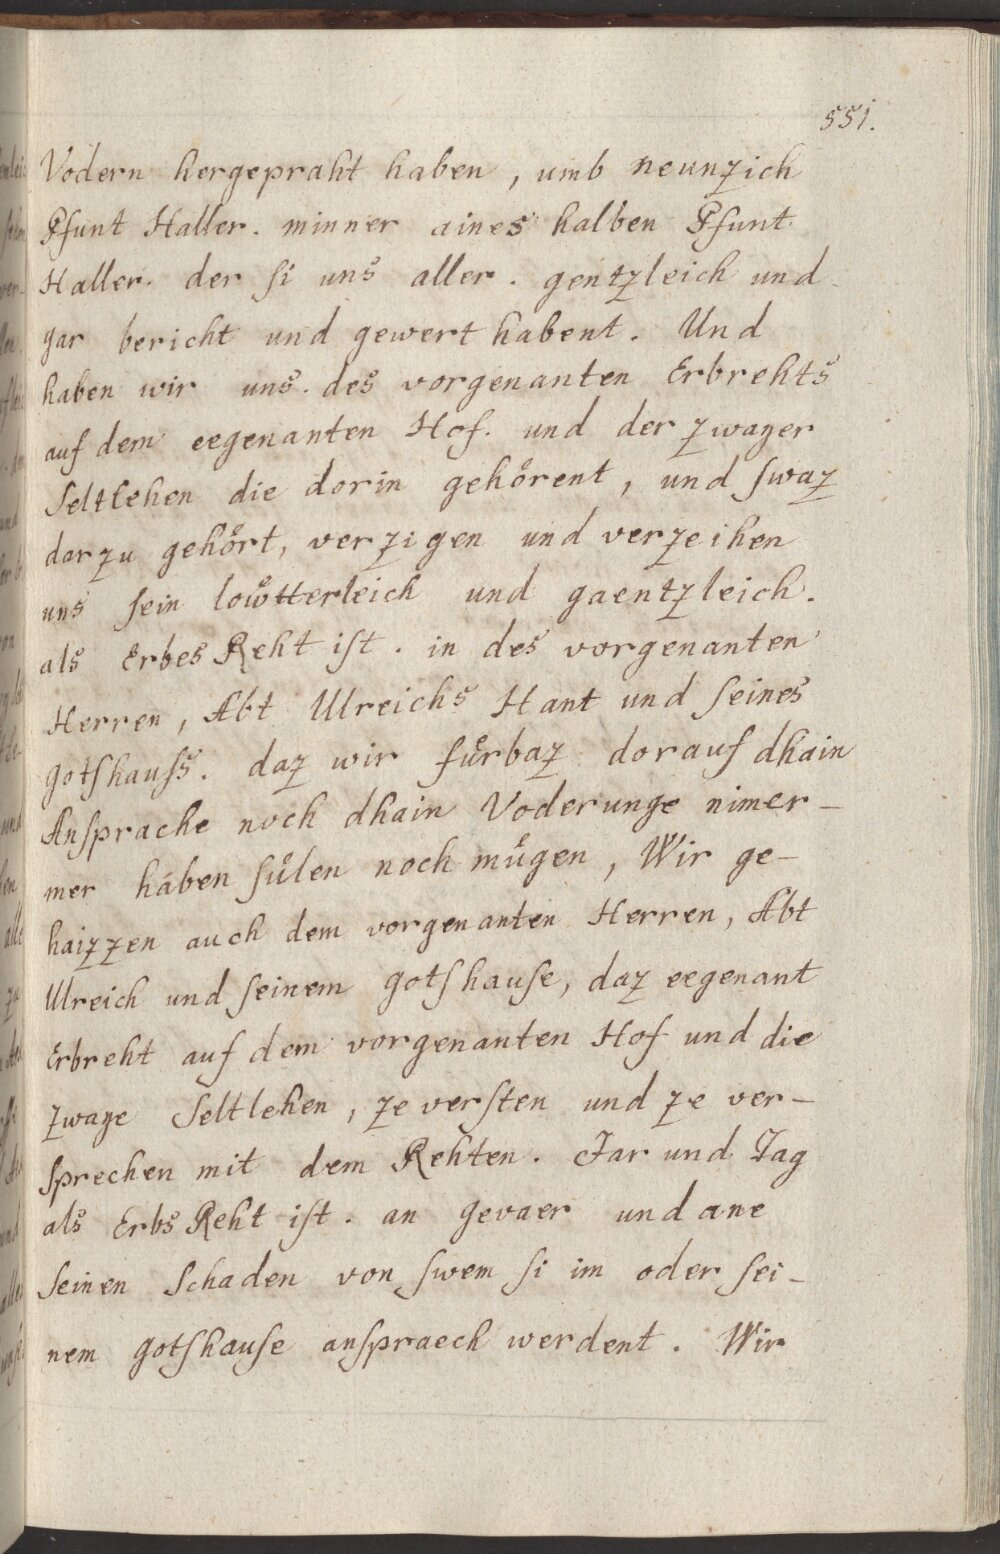 551.
Vodern hergepraht haben, umb neunzich
Pfunt Haller. minner aines halben Pfunt
Haller. der si uns aller. gentzleich und
gar bericht und gewert habent. Und
haben wir uns. des vorgenanten Erbrehts
auf dem eegenanten Hof. und der zwayer
Seltlehen die dorin gehörent, und swaz
darzu gehört, verzigen und verzeihen
uns sein lowͤtterleich und gaentzleich.
als Erbes Reht ist. in des vorgenanten
Herren, Abt Ulreichs Hant und seines
gotshauss. daz wir fuͤrbaz dorauf dhain
Ansprache noch dhain Voderunge nimer-
mer haben suͤlen noch muͤgen, Wir ge-
haizzen auch dem vorgenanten Herren, Abt
Ulreich und seinem gotshause, daz eegenant
Erbreht auf dem vorgenanten Hof und die
zwaye Seltlehen, ze versten und ze ver-
sprechen mit dem Rehten. Jar und Tag
als Erbs Reht ist. an gevaer und ane
seinen Schaden von swem si im oder sei-
nem gotshause anspraech werdent. Wir